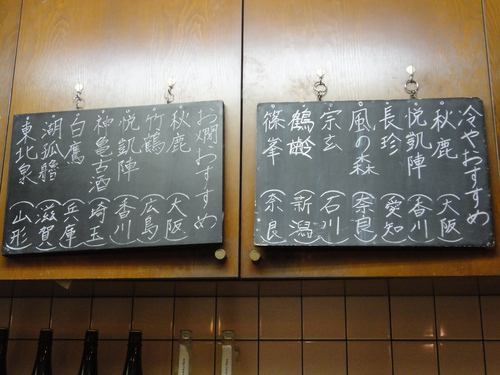 冷やおすすめ
秋鹿(大阪)
悦凱陣(香川)
長珍(愛知)
風の森(奈良)
宗玄(石川)
鶴齢(新潟)
篠峯(奈良)
お燗おすすめ
秋鹿(大阪)
竹鶴(広島)
悦凱陣(香川)
神亀古酒(埼玉)
白鷹(兵庫)
湖孤艪(滋賀)
東北泉(山形)